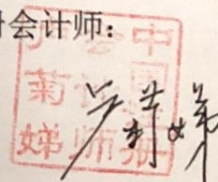 册会计师：
中国注册
会计师
菊娣